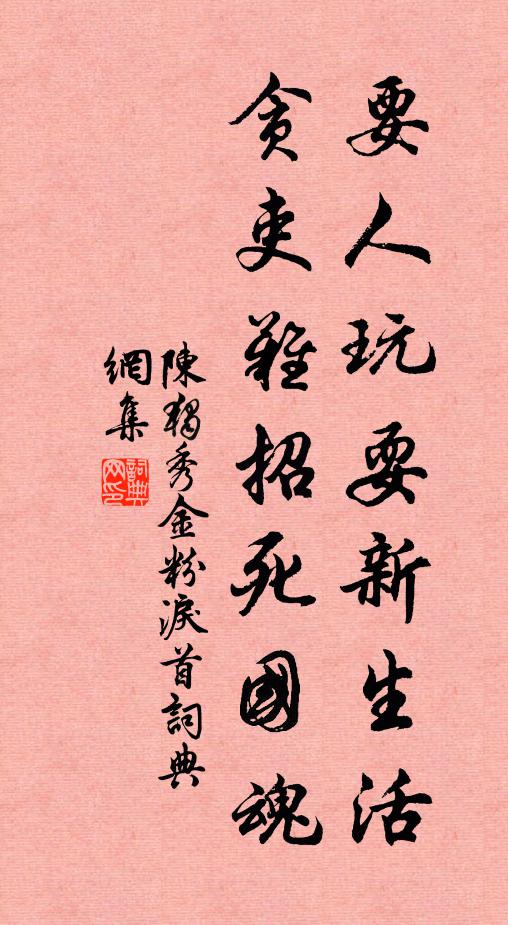 要人玩耍新生活
貪吏難招死國魂
陳獨秀金粉淚首詞典
網集
詞典網印